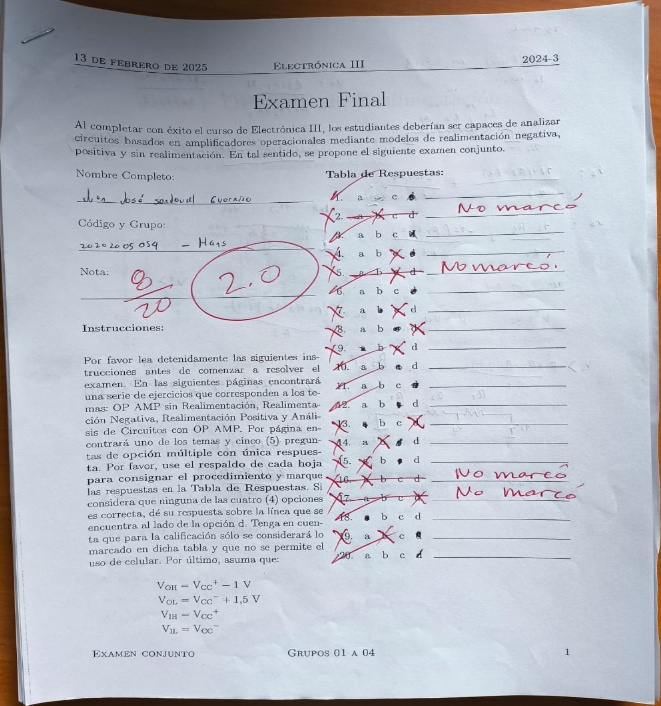 13 DE FEBRERO DE 2025 ELECTRÓNICA III 2024-3
Examen Final
Al completar con éxito el curso de Electrónica III, los estudiantes deberían ser capaces de analizar
circuitos basados en amplificadores operacionales mediante modelos de realimentación negativa,
positiva y sin realimentación. En tal sentido, se propone el siguiente examen conjunto.
Nombre Completo:
José Sandoval
Código y Grupo:
20202005059 - Hans
Nota:
8/20 2.0
Instrucciones:
Por favor lea detenidamente las siguientes ins-
trucciones antes de comenzar a resolver el
examen. En las siguientes páginas encontrará
una serie de ejercicios que corresponden a los te-
mas: OP AMP sin Realimentación, Realimenta-
ción Negativa, Realimentación Positiva y Análi-
sis de Circuitos con OP AMP. Por página en-
contrará uno de los temas y cinco (5) pregun-
tas de opción múltiple con única respues-
ta. Por favor, use el respaldo de cada hoja
para consignar el procedimiento y marque
las respuestas en la Tabla de Respuestas. Si
considera que ninguna de las cuatro (4) opciones
es correcta, dé su respuesta sobre la línea que se
encuentra al lado de la opción d. Tenga en cuen-
ta que para la calificación sólo se considerará lo
marcado en dicha tabla y que no se permite el
uso de celular. Por último, asuma que:
VOH = VCC+ − 1 V
VOL = VCC− + 1,5 V
VIH = VCC+
VIL = VCC−
Tabla de Respuestas:
1. a c d
2. a c d No marcó
3. a b c d
4. a b d
5. a b d No marcó.
6. a b c d
7. a b d
8. a b c
9. a b d
10. a b c d
11. a b c d
12. a b c d
13. a b c
14. a c d
15. b c d
16. b c d No marcó
17. a b c No marcó
18. a b c d
19. a c d
20. a b c d
EXAMEN CONJUNTO GRUPOS 01 A 04 1